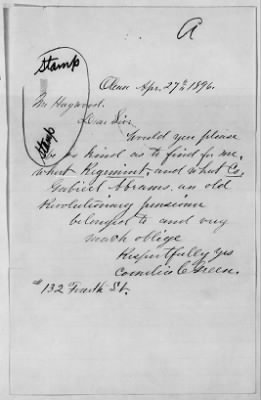 A
Stamp
Stamp
Olean Apr. 27th 1896.
Mr Haywood.
Dear Sir
Would you please
be kind as to find for me.
what Regiment, and what Co.
Gabriel Abrams, an old
Revolutionary pensioner
belonged to and very
much oblige
Respectfully yrs
Cornelius C Green.
# 132 Fourth St.